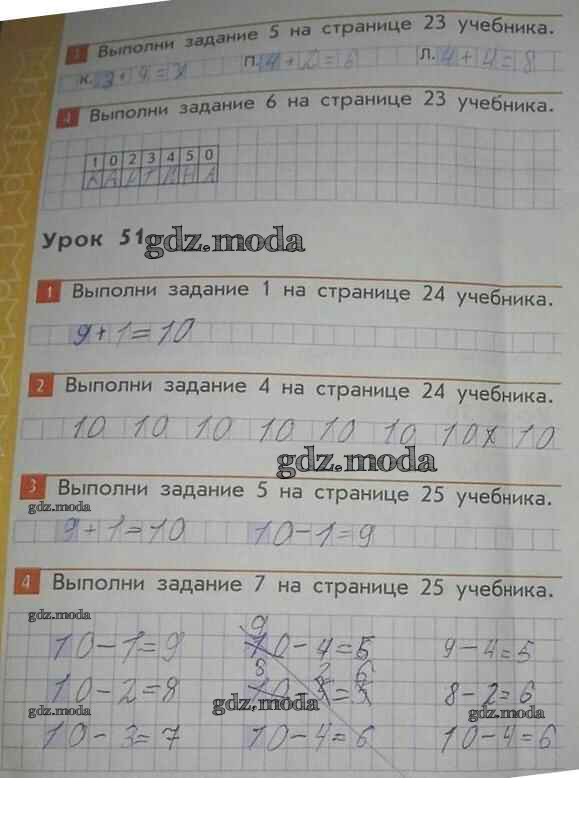 3 Выполни задание 5 на странице 23 учебника.
К. 3+4=7 П. 4+2=6 Л. 4+4=8
4 Выполни задание 6 на странице 23 учебника.
1 0 2 3 4 5 0
Урок 51
gdz.moda
1 Выполни задание 1 на странице 24 учебника.
9+1=10
2 Выполни задание 4 на странице 24 учебника.
10 10 10 10 10 10 10 10
gdz.moda
3 Выполни задание 5 на странице 25 учебника.
gdz.moda
9+1=10 10-1=9
4 Выполни задание 7 на странице 25 учебника.
gdz.moda
10-1=9 10-4=5 9-4=5
10-2=8 8-2=6
gdz.moda gdz.moda gdz.moda
10-3=7 10-4=6 10-4=6